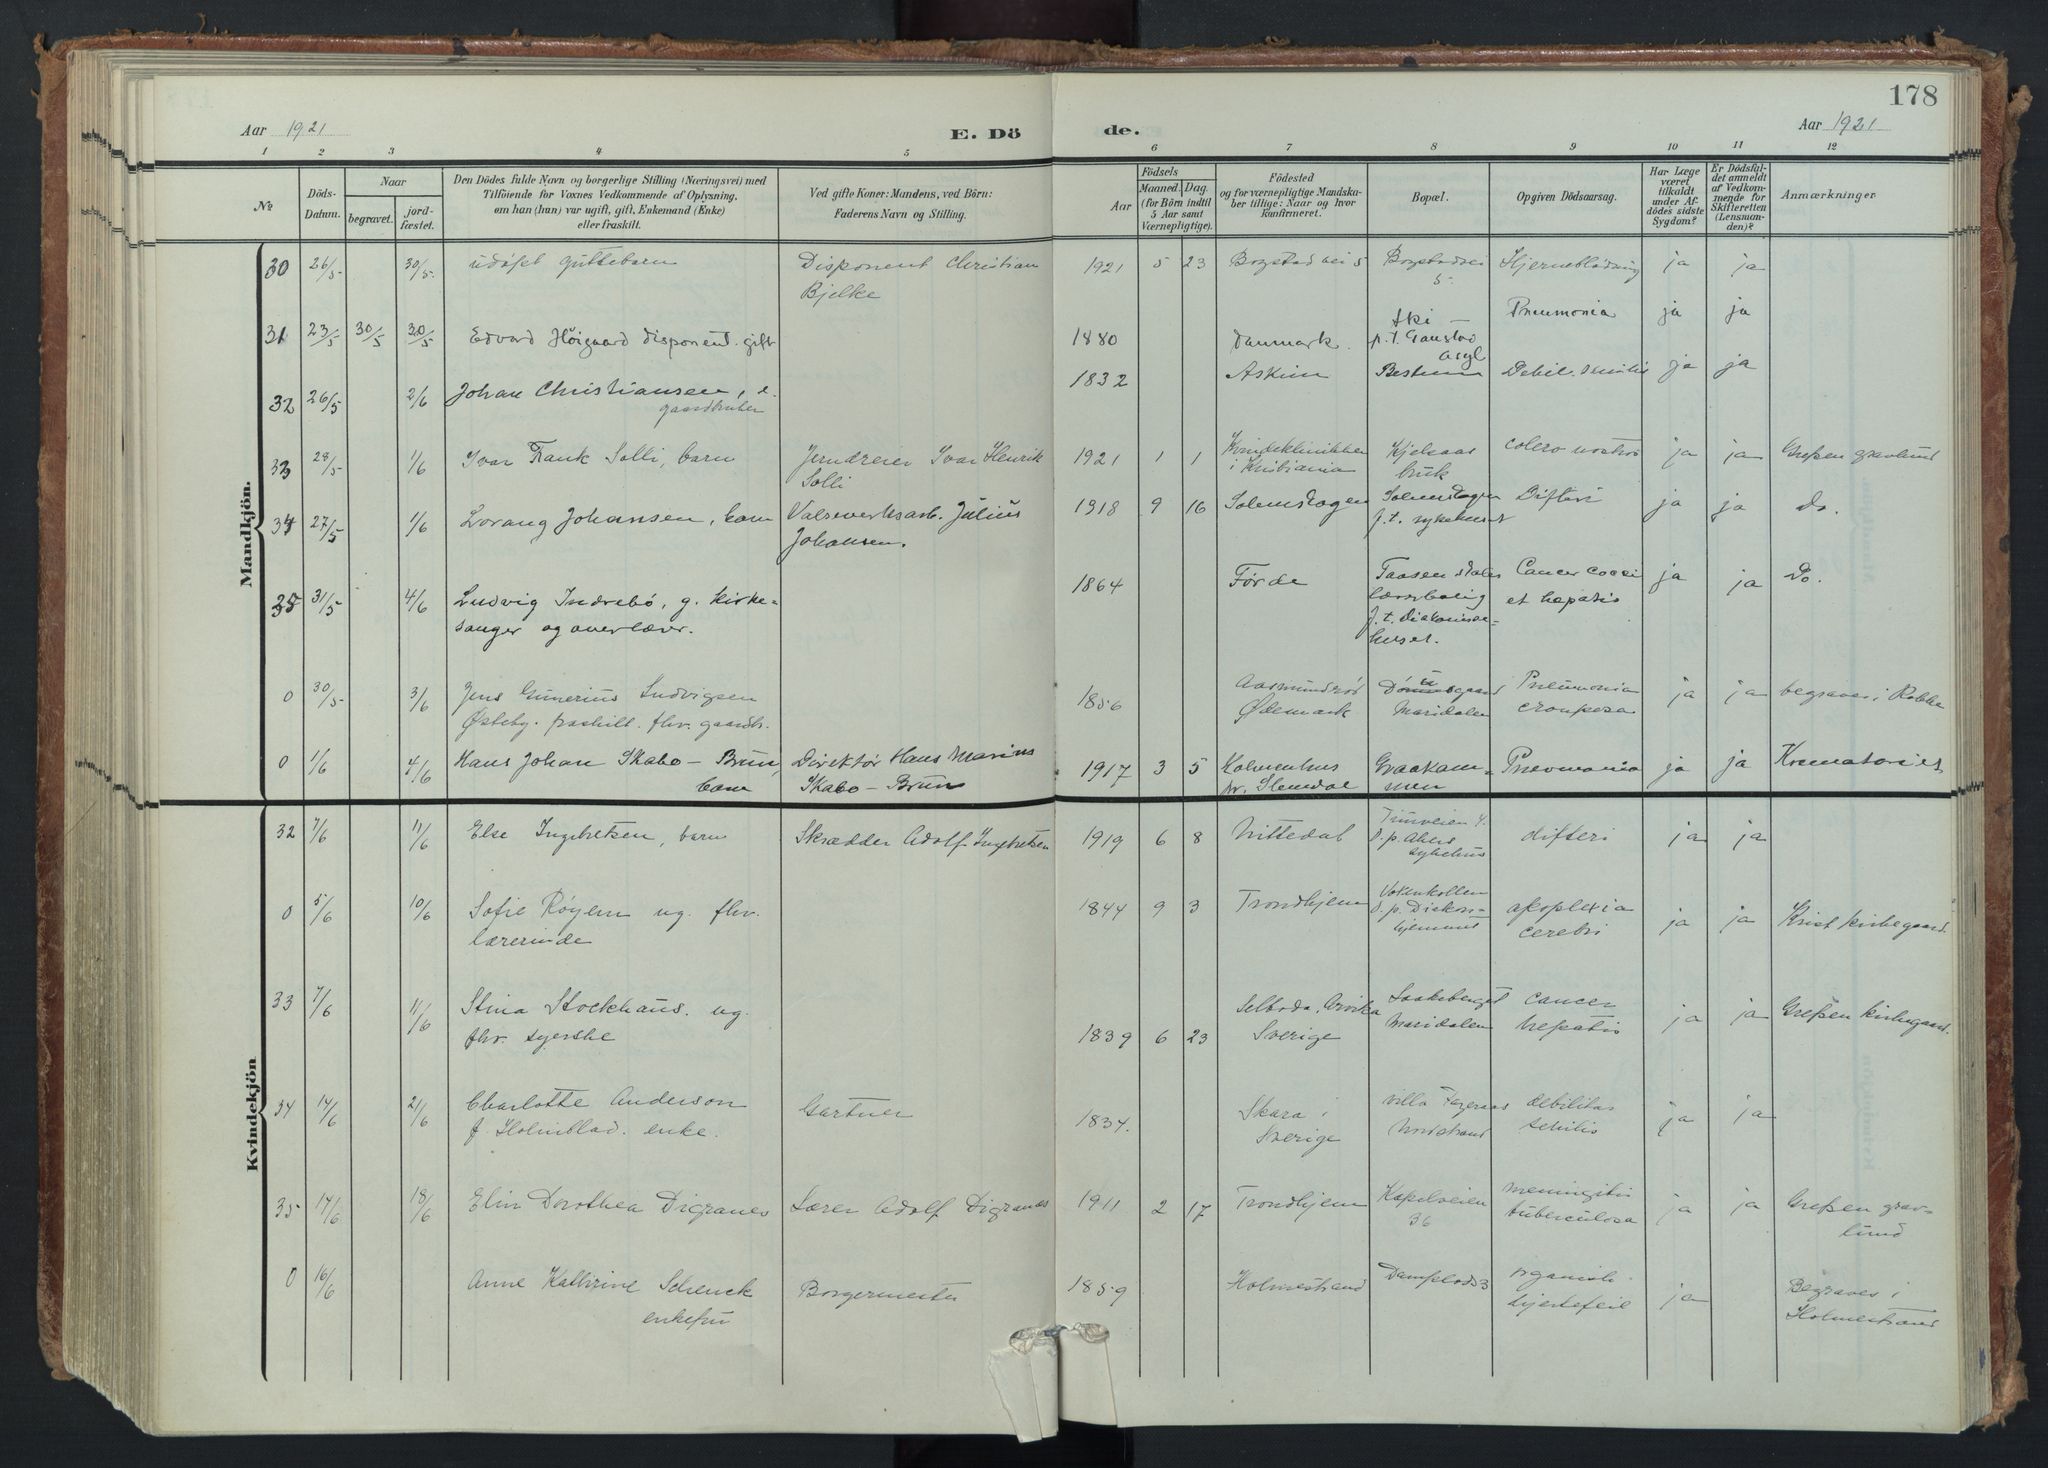 178
Aar 1921
E. Dö
de.
Aar 1921
1 2 3 4 5 6 7 8 9 10 11 12
No
Döds-Datum.
Naar
begravet.
jord-fæstet.
Den Dödes fulde Navn og borgerlige Stilling (Næringsvei) med
Tilföiende for Voxnes Vedkommende af Oplysning,
om han (hun) var ugift, gift, Enkemand (Enke)
eller fraskilt.
Ved gifte Koner: Mandens, ved Börn:
Faderens Navn og Stilling.
Födsels
Aar
Maaned. Dag.
(for Börn indtil
5 Aar samt
Værnepligtige).
Födested
og for værnepligtige Mandska-
ber tillige: Naar og hvor
konfirmeret.
Bopæl.
Opgiven Dödsaarsag.
Har Læge
været
tilkaldt
under Af-
dödes sidste
Sygdom?
Er Dödsfal-
det anmeldt
af Vedkom-
mende for
Skifteretten
(Lensman-
den)?
Anmærkninger
Mandkjön.
30 26/5 30/5 udöpt guttebarn Disponent Christian 1921 5 23 Bogstadvei 5 Bogstadvei Hjerneblödning ja ja
Bjelke 5
31 23/5 30/5 30/5 Edvard Höigaard disponent. gift 1880 Danmark. Ski — Pneumonia ja ja
p.t. Gaustad
asyl
32 26/5 2/6 Johan Christiansen, 1832 Askim Bestum Debil. senilis ja ja
gaardbruker
33 28/5 1/6 Ivar Frank Solli, barn Jerndreier Ivar Henrik 1921 1 1 Kvindeklinikken Kjelsaas colera nostras ja ja Grefsen gravlund
Solli i Kristiania bruk
34 27/5 1/6 Lorang Johansen, barn Valseverksarb. Julius 1918 9 16 Solemskogen Solemskogen Difteri ja ja Do.
Johansen. f.t. sykehuset
35 31/5 4/6 Ludvig Indrebö, g. kirke- 1864 Förde Taasen skoles Cancer coeci ja ja Do.
sanger og overlærer. lærerbolig et hepatis
f.t. Diakonisse-
huset.
0 30/5 3/6 Jens Gunerius Ludvigsen 1856 Aasmundröd Pneumonia ja ja begraves i Rakke
Østeby. fraskilt. fhv. gaardb. Ødemark Maridalen crouposa
0 1/6 4/6 Hans Johan Skabo - Brun, Direktör Hans Marius 1917 3 5 Holmenhus Graakam- Pneumonia ja ja Krematoriet
barn Skabo - Brun pr. Slemdal men
Kvindekjön
32 7/6 11/6 Else Ingebretsen, barn Skrædder Adolf Ingebretsen 1919 6 8 Nittedal difteri ja ja
d.p. Akers
sykehus
0 5/6 10/6 Sofie Röyem ug. fhv. 1844 9 3 Trondhjem Voksenkollen apoplexia ja ja Krist kirkegaard.
lærerinde d.p. Diakon- cerebri
hjemmet
33 7/6 11/6 Stina Stockhaus. ug. 1839 6 23 Selboda, Arvika cancer ja ja Grefsen kirkegaard.
fhv. syerske Sverige Maridalen hepatis
34 14/6 21/6 Charlotte Anderson Gartner 1834. Skara i villa debilitas ja ja
f. Holmblad. enke. Sverige Nordstrand senilis
35 14/6 18/6 Elin Dorothea Digranes Lærer Adolf Digranes 1911 2 17 Trondhjem Kapelveien meningitis ja ja Grefsen grav-
36 tuberculosa lund
0 16/6 Anne Kathrine Schenck Borgermester 1859 Holmestrand organisk ja Begraves i
enkefru hjertefeil Holmestrand